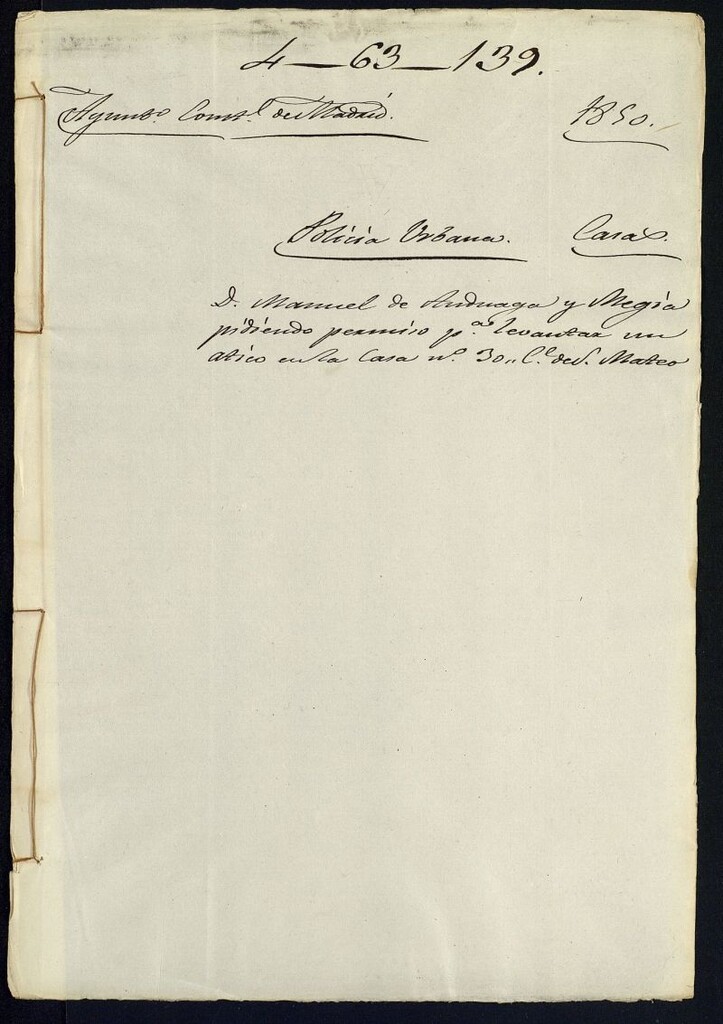 4—63—139.
Ayunto. Constl. de Madrid. 1850.
Policia Urbana. Casas.
D. Manuel de Anduaga y Megia
pidiendo permiso pa. levantar un
atico en la Casa no. 30,, Ce. de S. Mateo